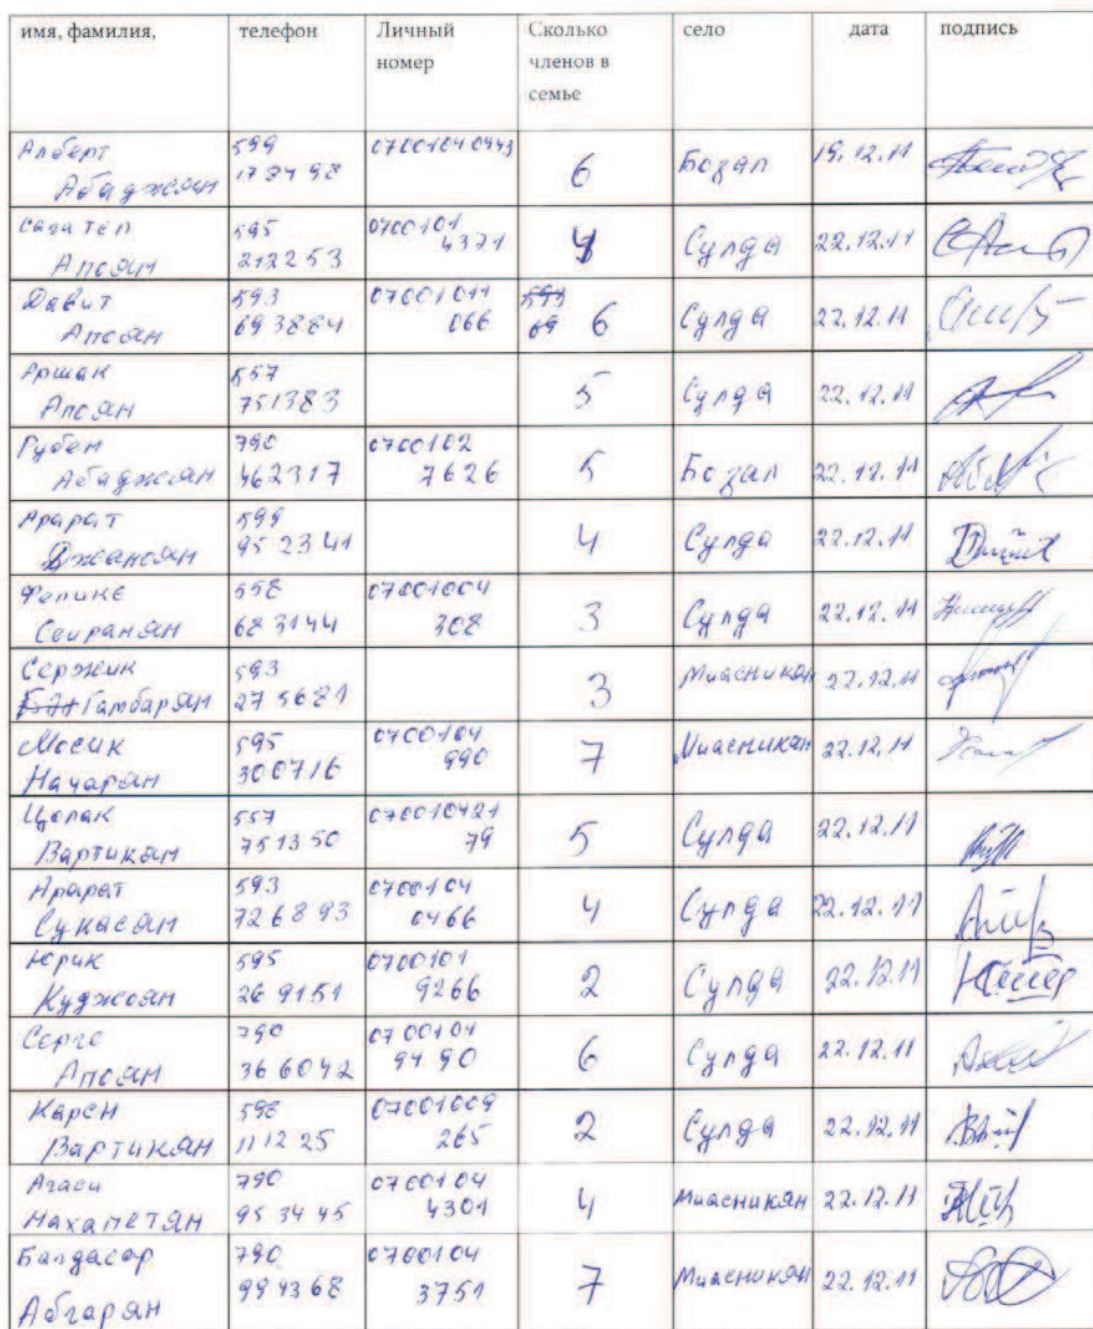 имя, фамилия, телефон Личный номер Сколько членов в семье село дата подпись
Алберт Абаджян 599 178498 07001040443 6 Бозал 19.12.11
Сагател Апоян 595 212253 07001014371 4 Сулда 22.12.11
Давит Апоян 593 693884 07001011066 6 Сулда 22.12.11
Аршак Апоян 557 751383 5 Сулда 22.12.11
Рубен Абаджян 790 462317 07001027626 5 Бозал 22.12.11
Арарат Джаноян 599 952341 4 Сулда 22.12.11
Феликс Сеиранян 558 683144 07001004308 3 Сулда 22.12.11
Сержик Гамбарян 593 275681 3 Миасникян 22.12.11
Мосик Начарян 595 300716 0700104990 7 Миасникян 22.12.11
Цолак Вартикян 557 751350 07001042179 5 Сулда 22.12.11
Арарат Сукасян 593 726893 07001040466 4 Сулда 22.12.11
Юрик Куджоян 595 269151 07001019266 2 Сулда 22.12.11
Серго Апоян 790 366042 07001049490 6 Сулда 22.12.11
Карен Вартикян 598 111225 07001009265 2 Сулда 22.12.11
Агаси Нахапетян 790 953445 07001044301 4 Миасникян 22.12.11
Балдасар Абгарян 790 994368 07001043751 7 Миасникян 22.12.11